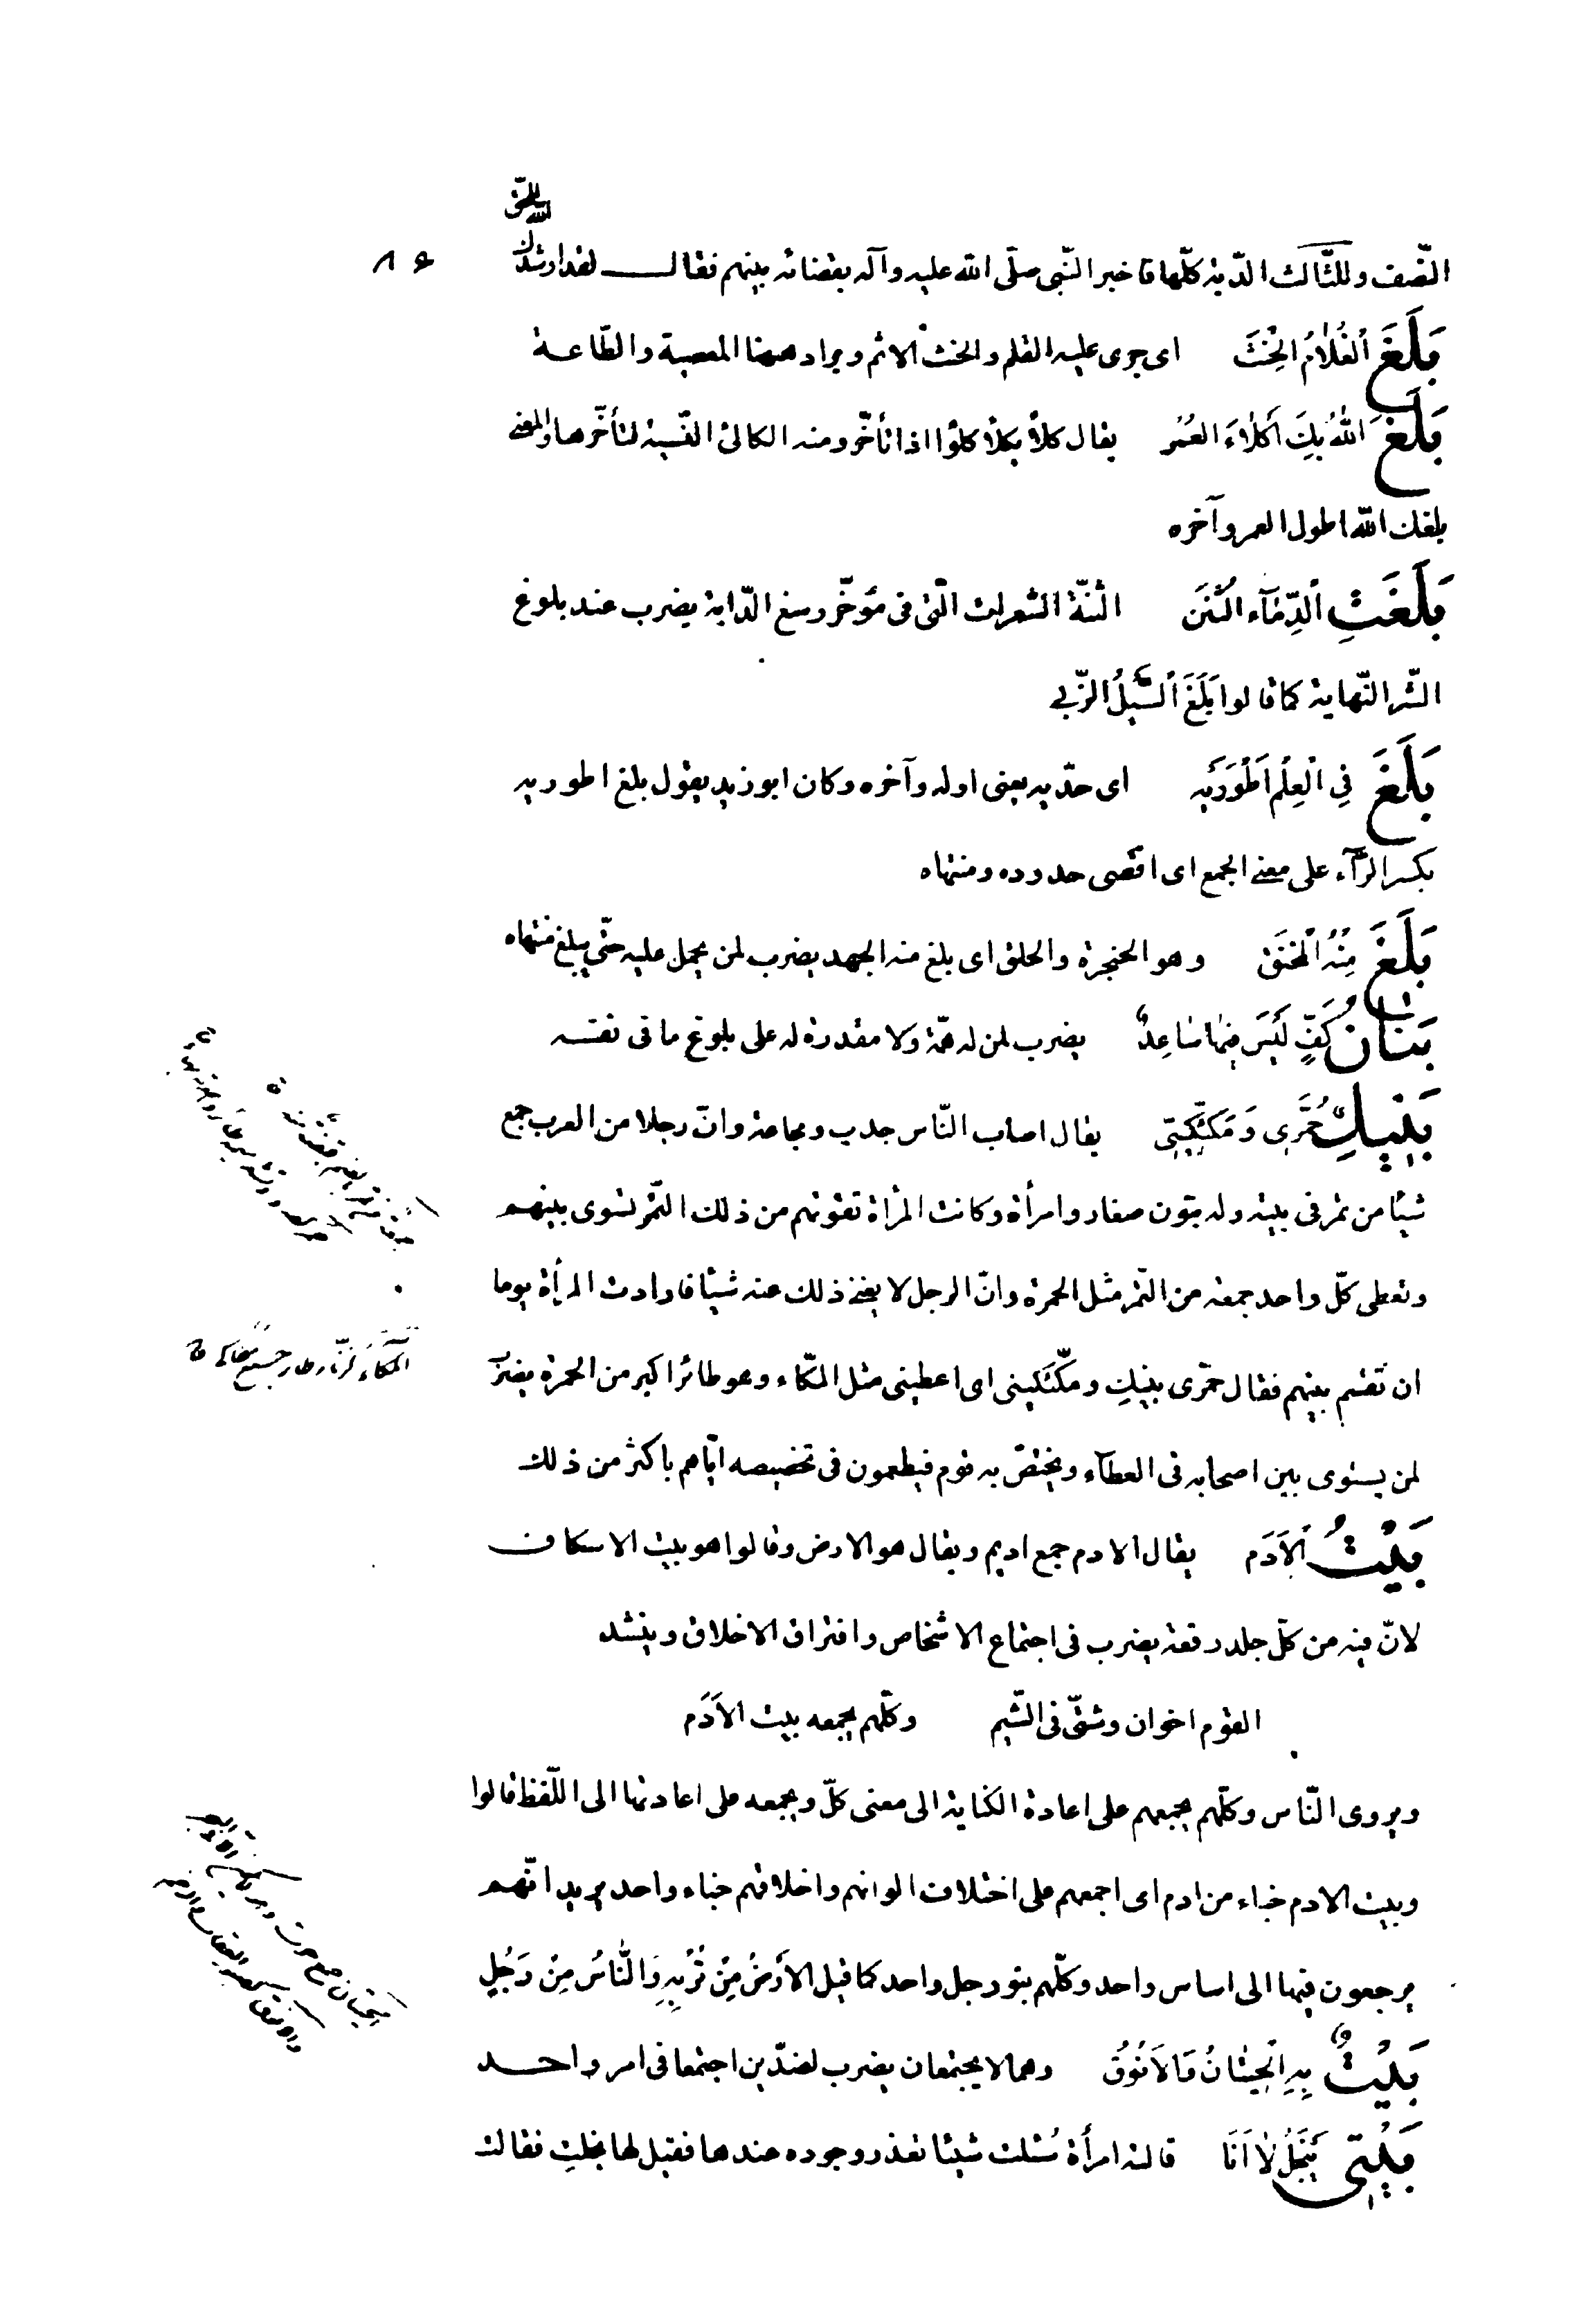 النّصف وللثّالث الدّية كلّها فاخبر النّبى صلّى الله عليه وآله بقضائه بينهم فقال لقد ارشدك
الله للحقّ
٨٤
بَلَغَ الغُلامُ الحِنْثَ اى جرى عليه القلم والحنث الاثم ويراد ههنا المعصية والطّاعة
بَلَغَ اللهُ بِكَ اَكْلاءَ العُمُرِ يقال كلأ يكلأ كلؤا اذا تأخّر ومنه الكالئ النّسية لتأخّرها والمعنى
بلغك الله اطول العمر وآخره
بَلَغَتِ الدِّمَآء الثُّنَنَ الثنّة الشعرات الّتى فى مؤخّر رسغ الدّابة يضرب عند بلوغ
الشّر النّهاية كما قالوا بَلَغَ السَّيْلُ الزّبى
بَلَغَ فِى الْعِلْمِ اَطْوَرَيْهِ اى حدّيه يعنى اوله وآخره وكان ابو زيد يقول بلغ اطوريه
بكسر الرّآء على معنى الجمع اى اقصى حدوده ومنتهاه
بَلَغَ مِنْهُ الْمُخَنَّقَ وهو الحنجرة والحلق اى بلغ منه الجهد يضرب لمن يحمل عليه حتّى يبلغ منتهاه
بَنَانُ كَفٍّ لَيْسَ فِيهَا سَاعِدٌ يضرب لمن له همّة ولا مقدرة له على بلوغ ما فى نفسه
بَيْنَكِ حُمَّرِى وَ مَكِّكِينِى يقال اصاب النّاس جدب ومجاعة وانّ رجلا من العرب جمع
شيئا من تمر فى بيته وله بنون صغار وامرأة وكانت المرأة تقوتهم من ذلك التّمر تسوى بينهم
وتعطى كلّ واحد جمعة من التّمر مثل الحمرة وانّ الرجل لا يغنى ذلك عنه شيئا فارادت المرأة يوما
ان تقسم بينهم فقال حمّرى بينكِ ومكّكينى اى اعطينى مثل المكّاء وهو طائر اكبر من الحمرة يضرب
المكّاء
لمن يستوى بين اصحابه فى العطآء ويختصّ به قوم فيطمعون فى تخصيصه ايّاهم باكثر من ذلك
بَيْتُ الاَدَمِ يقال الادم جمع اديم ويقال هو الارض وقالوا هو بيت الاسكاف
لانّ فيه من كلّ جلد رقعة يضرب فى اجتماع الاشخاص وافتراق الاخلاق وينشد
القوم اخوان وشتّى فى الشّيم وكلّهم يجمعه بيت الاَدَم
ويروى النّاس وكلّهم يجمعهم على اعادة الكناية الى معنى كلّ ويجمعه على اعادتها الى اللّفظ قالوا
وبيت الادم خباء من ادم اى اجمعهم على اختلاف الوانهم واخلاقهم خباء واحد يريد انّهم
يرجعون فيها الى اساس واحد وكلّهم بنو رجل واحد كما قيل الاَرْضُ مِنْ تُرْبَةٍ وَالنّاسُ مِنْ رَجُلٍ
بَيْتٌ بِهِ الْحِيْتَانُ وَالاَنُوقُ وهما لا يجتمعان يضرب لضدّين اجتمعا فى امر واحد
بَيْتِى يَبْخَلُ لا اَنَا قالته امرأة سُئلت شيئا تعذر وجوده عندها فقيل لها بخلتِ فقالت